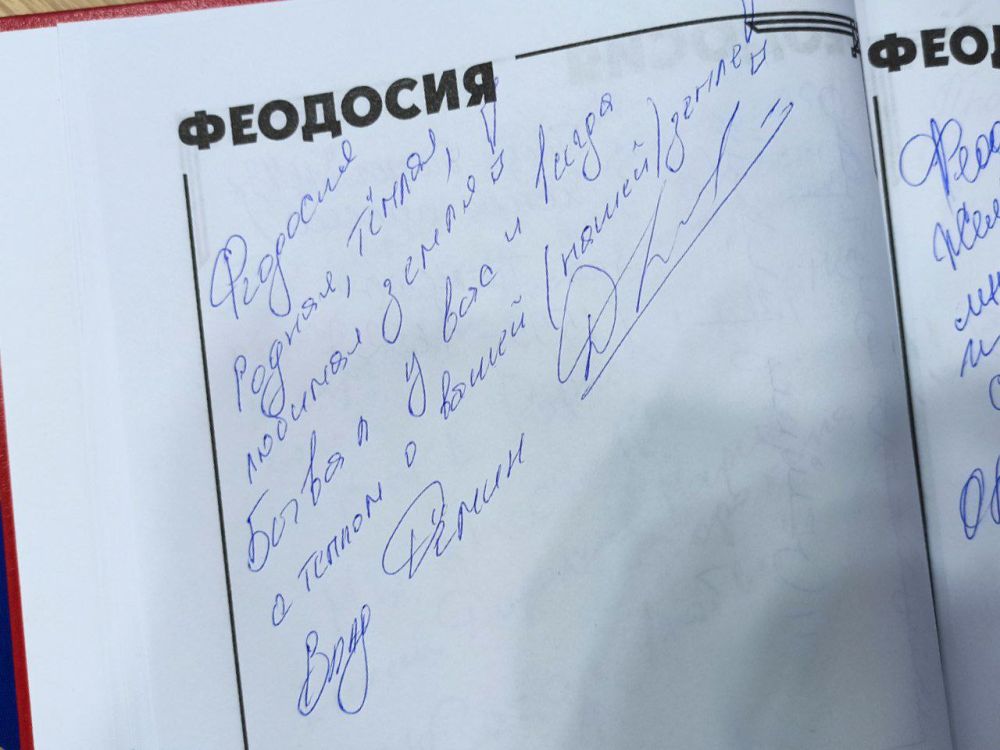 ФЕОДОСИЯ
Феодосия
Родная, тёплая,
любимая земля!
Бывал у вас и
о теплом о вашей (нашей) земле!
Влад Дёмин
ФЕОД
Феод